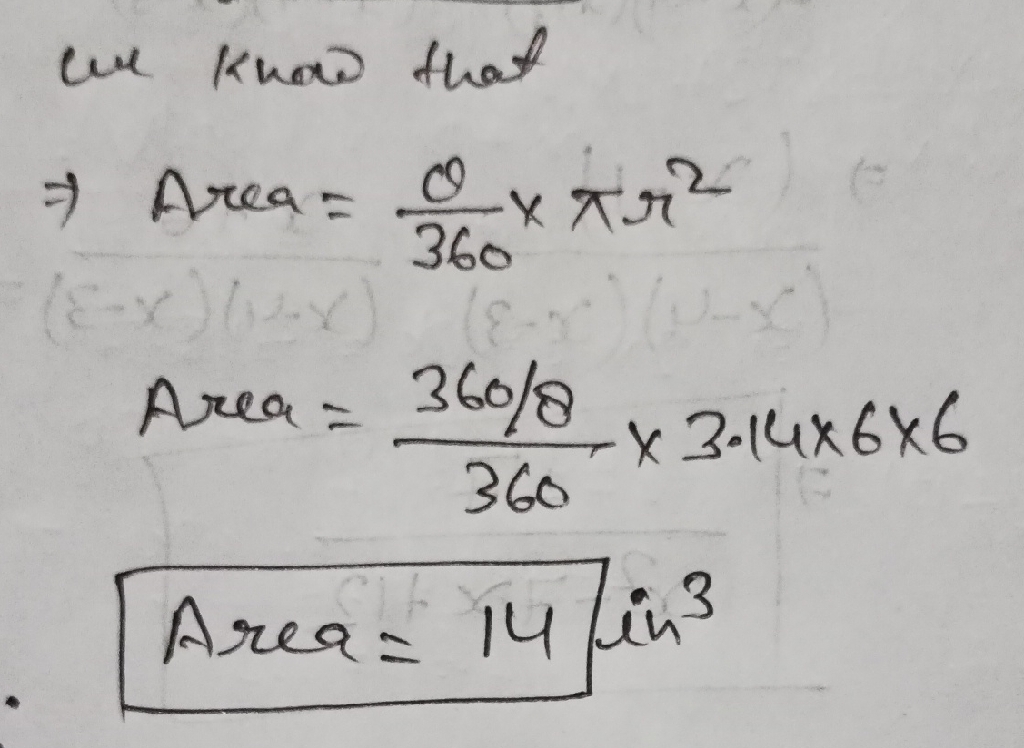 we know that
⇒ Area = θ/360 × πr²
Area = 360/8/360 × 3.14×6×6
Area = 14 in³